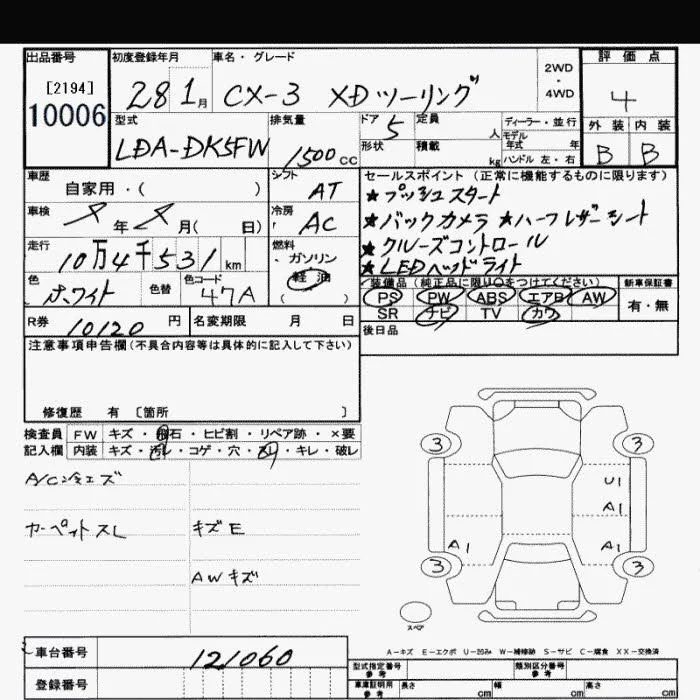 出品番号 初度登録年月 車名・グレード 2WD・4WD 評価点
[2194]
10006
28 1月 CX-3 XDツーリング 4
型式 排気量 ドア 定員 ディーラー・並行 外装 内装
LDA-DK5FW 1500cc 5 人 モデル年式 年 B B
形状 積載 kg ハンドル 左・右
車歴 自家用・( ) シフト AT
セールスポイント(正常に機能するものに限ります)
★プッシュスタート
★バックカメラ ★ハーフレザーシート
★クルーズコントロール
★LEDヘッドライト
車検 年 月( 日) 冷房 AC
走行 10万4千531km 燃料 ・ガソリン 軽油 ( )
色 ホワイト 色替 色コード 47A
装備品(純正品に限り○をつけてください) 新車保証書
PS PW ABS エアB AW 有・無
SR ナビ TV カワ
R券 10120円 名変期限 月 日
後日品
注意事項申告欄(不具合内容等は具体的に記入して下さい)
修復歴 有 〔箇所 〕
検査員 FW キズ・飛石・ヒビ割・リペア跡・×要
記入欄 内装 キズ・汚レ・コゲ・穴・スレ・キレ・破レ
A/C冷エズ
カーペットスレ キズE
AWキズ
3 3
U1
A1
A1 A1
3 3
スペア
A-キズ E-エクボ U-凹み W-補修跡 S-サビ C-腐食 XX-交換済
車台番号 121060
登録番号
型式指定番号 参考 類別区分番号 参考
車庫証明用 参考 長さ cm 幅 cm 高さ cm